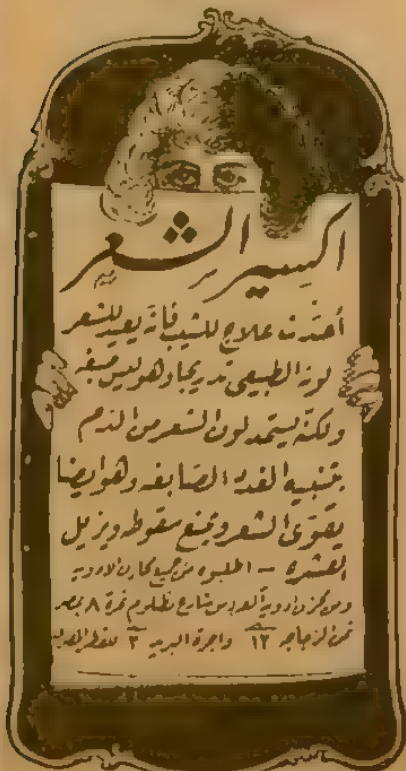 اكسير الشعر
أحدث علاج للشيب فانه يعيد للشعر
لونه الطبيعي تدريجا وهو ليس صبغه
ولكنه يستمد لون الشعر من الدم
بتنبيه الغدد الصابغه وهو ايضا
يقوى الشعر ويمنع سقوطه ويزيل
القشره - اطلبوه من جميع مخازن الادويه
ومن مخزن ادوية شارع مظلوم نمرة ٨ بمصر
ثمن الزجاجه ١٢ واجرة البريد ٣ للقطر